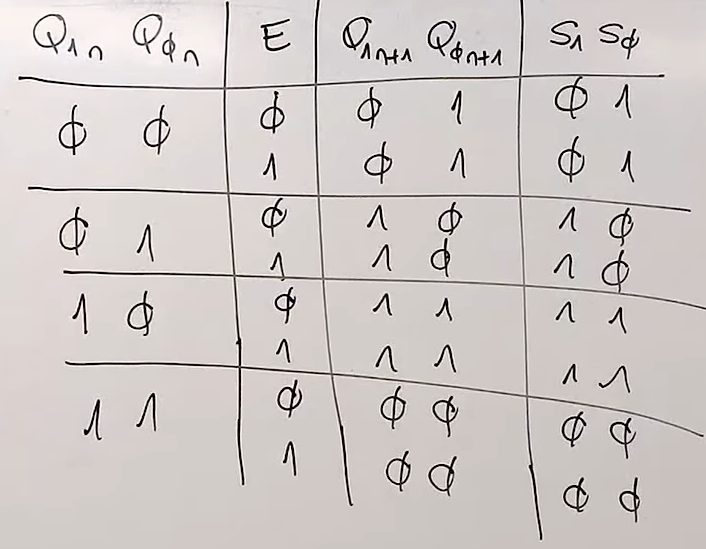 Q1n Qϕn E Q1n+1 Qϕn+1 S1 Sϕ
ϕ ϕ ϕ ϕ 1 ϕ 1
1 ϕ 1 ϕ 1
ϕ 1 ϕ 1 ϕ 1 ϕ
1 1 ϕ 1 ϕ
1 ϕ ϕ 1 1 1 1
1 1 1 1 1
1 1 ϕ ϕ ϕ ϕ ϕ
1 ϕ ϕ ϕ ϕ